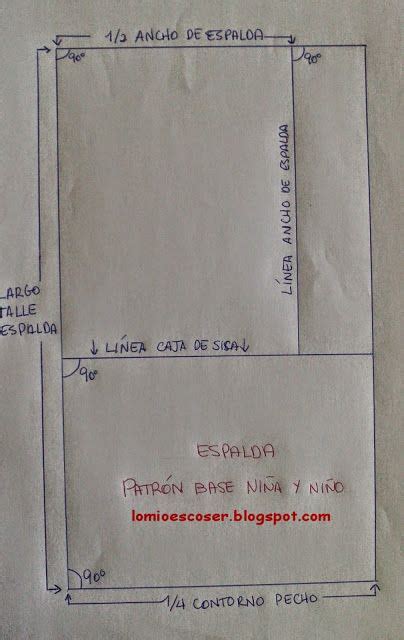 1/2 ANCHO DE ESPALDA
90º
90º
LÍNEA ANCHO DE ESPALDA
LARGO
TALLE
ESPALDA
LÍNEA CAJA DE SISA
90º
ESPALDA
PATRÓN BASE NIÑA Y NIÑO
lomioescoser.blogspot.com
90º
1/4 CONTORNO PECHO